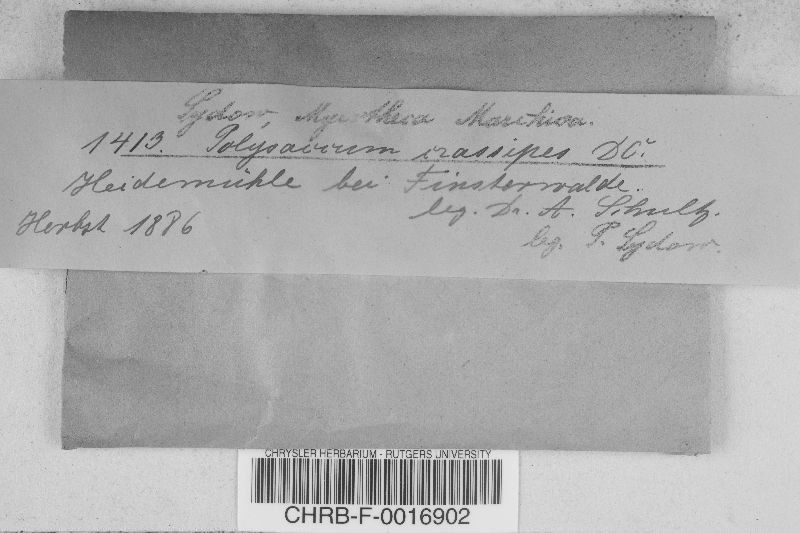 Sydow, Mycotheca Marchica.
1413. Polysaccum crassipes DC.
Heidemühle bei Finsterwalde.
leg. Dr. A. Schultz.
Herbst 1886
leg. P. Sydow.
CHRYSLER HERBARIUM - RUTGERS UNIVERSITY
CHRB-F-0016902